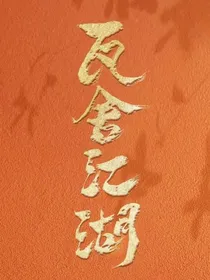 瓦舍江湖